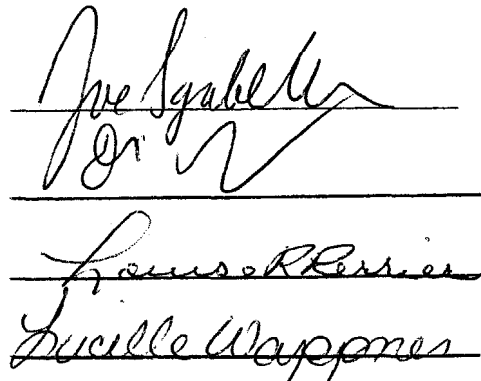 Joe Sgabell
Louise R Perrier
Lucille Wappner